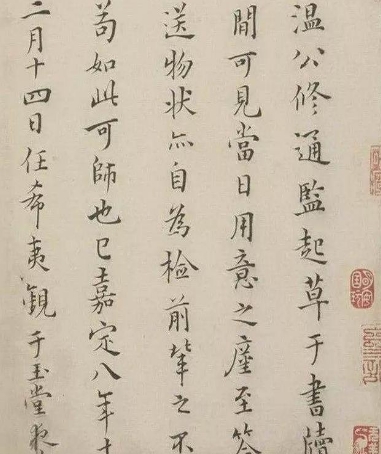 温公修通鑑起草于書牘
間可見當日用意之廑至答
送物状亦自為檢前輩之不
苟如此可師也已嘉定八年十
二月十四日任希夷觀于玉堂夜